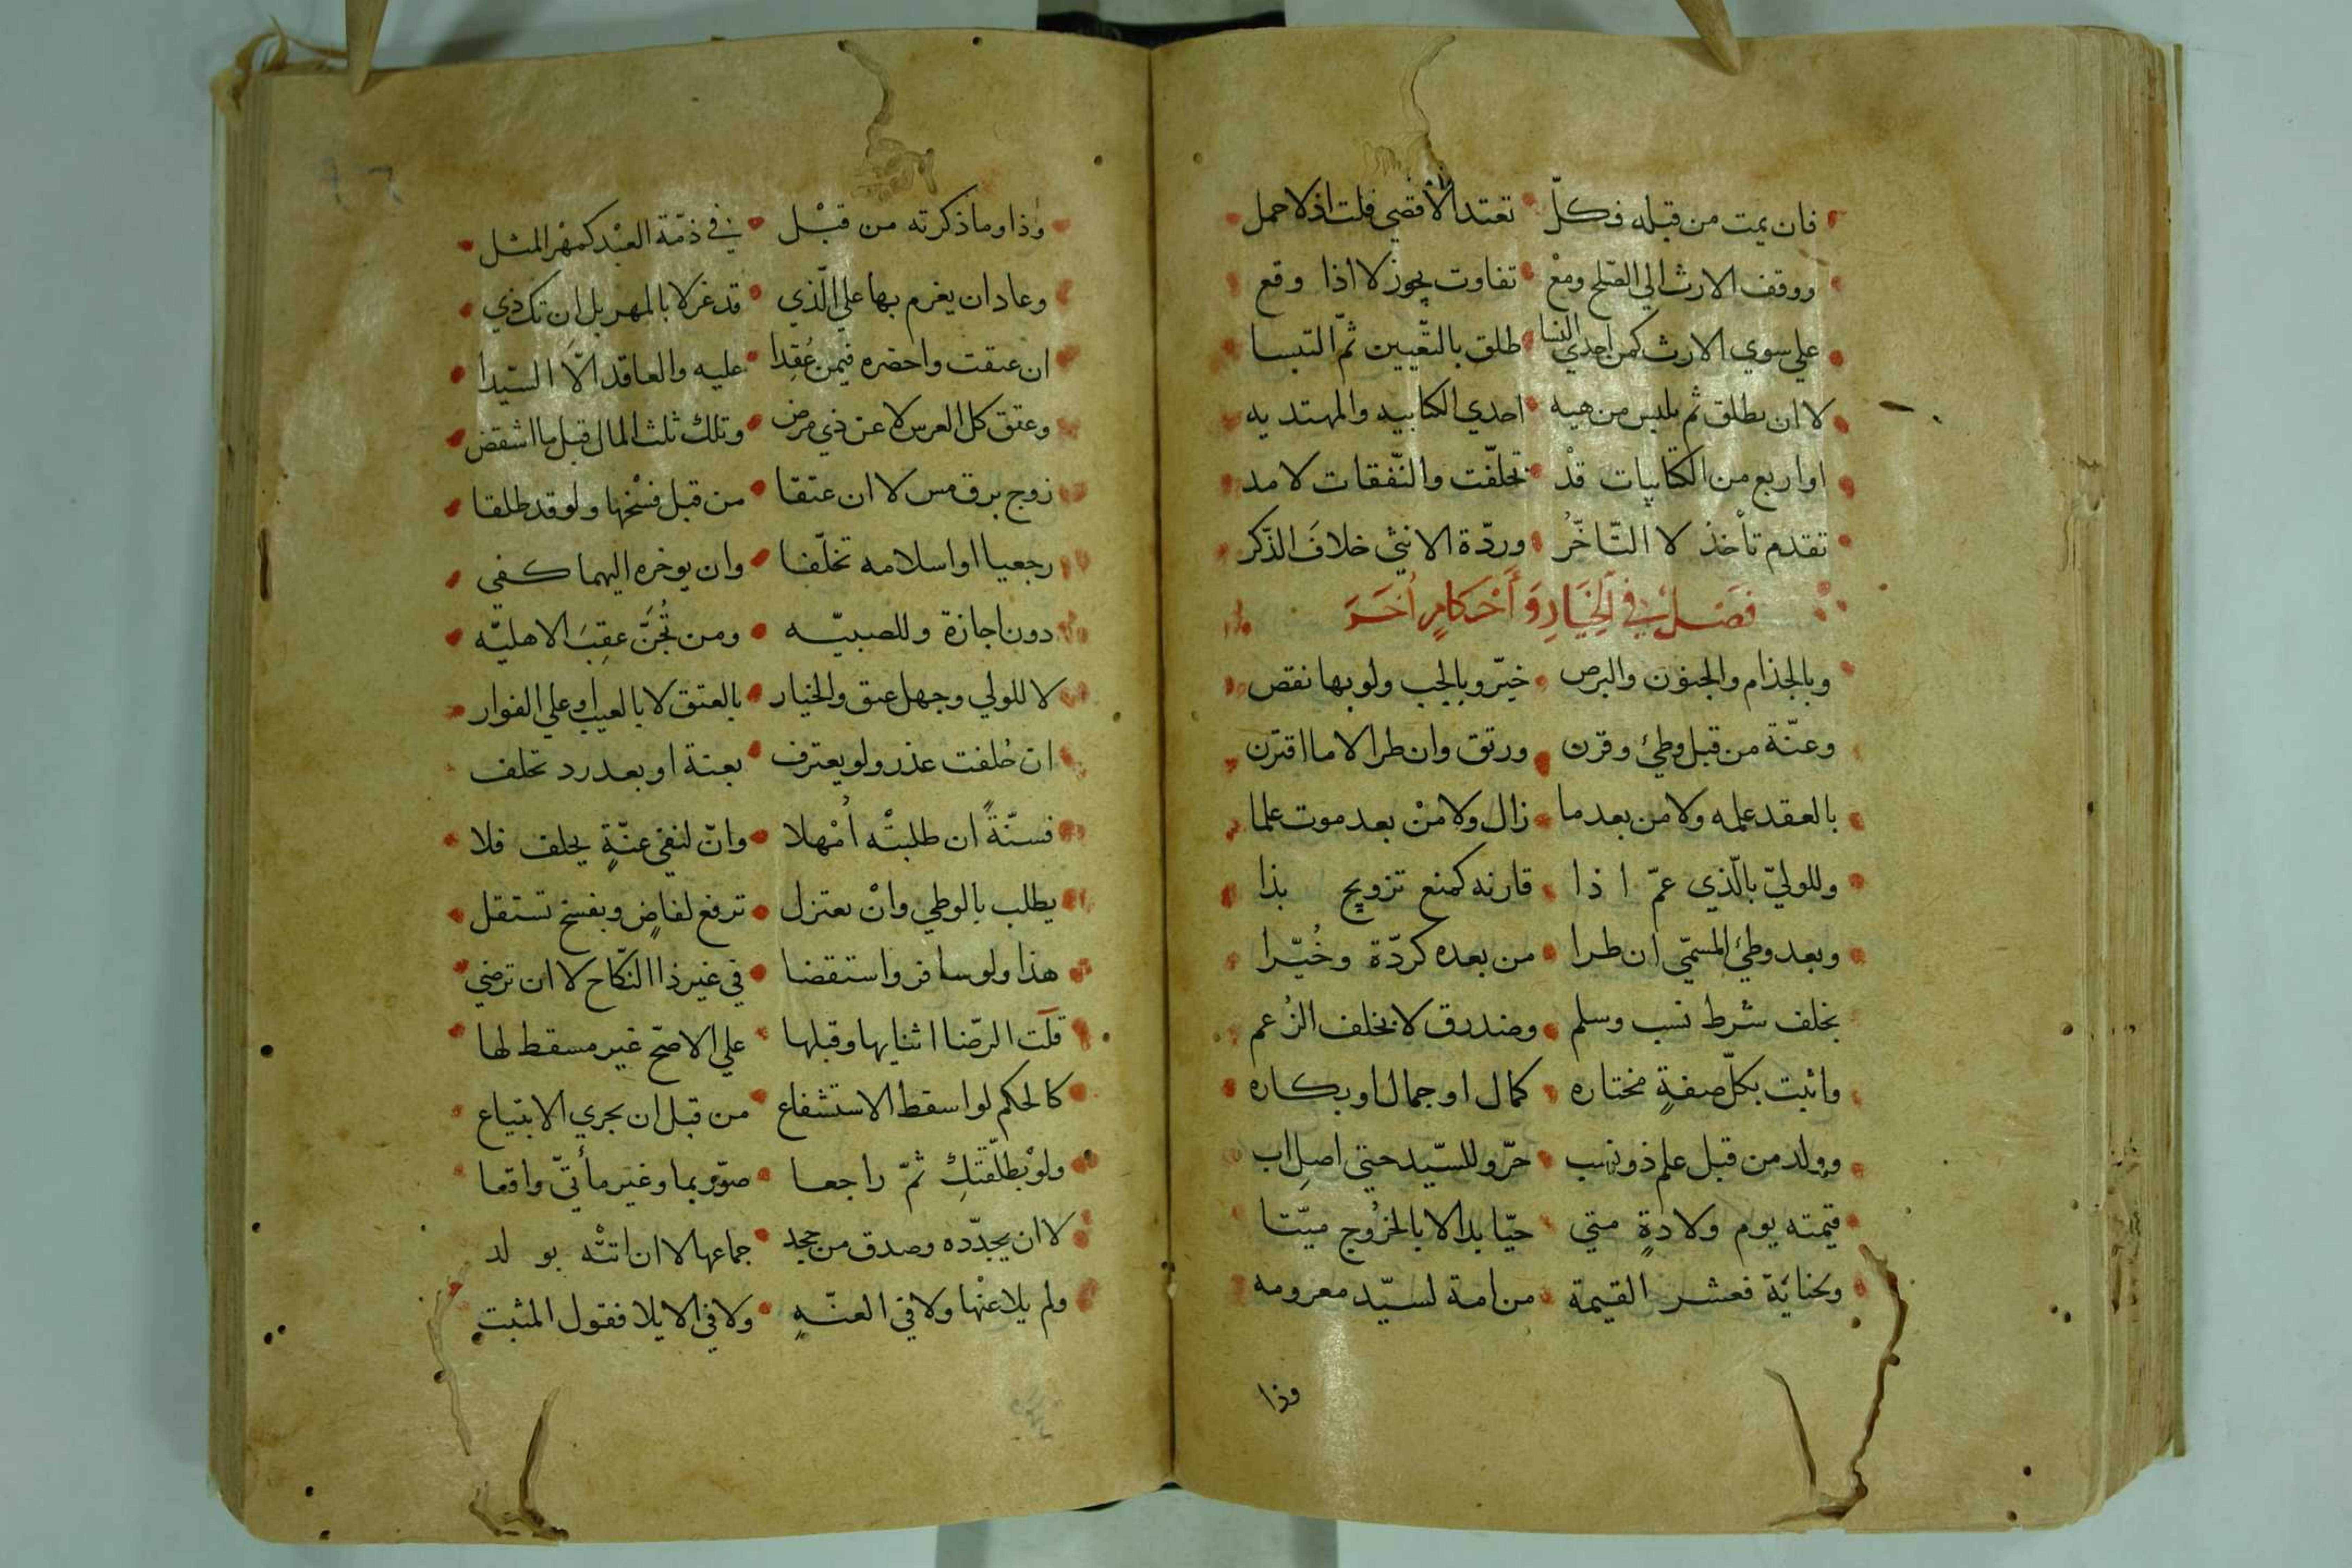 فان يمت من قبله فكلّ تعتد الاقصي قلت اذ لا حمل
ووقف الارث الي الصّلح ومعْ تفاوت يجوز لا اذا وقع
علي سوي الارث كمن احدي النسا طلق بالتّعيين ثمّ التبسا
لا ان يطلق ثم يلبس من هيه احدي الكتابيه والمهتديه
او اربع من الكتابيات قدْ تخلّفت والنّفقات لامد
تقدم تأخذُ لا التّاخّرُ وردّة الانثي خلافَ الذّكر
فَصْلٌ فِي الْخِيَارِ وَأَحْكَامٍ أُخَرَ
وبالجذام والجنون والبرص خيّر وبالجب ولو بها نقص
وعنّة من قبل وطئ وقرن ورتق وان طرا لا ما اقترن
بالعقد علمه ولا من بعد ما زال ولا منْ بعد موت علما
وللوليّ بالّذي عمّ اذا قارنه كمنع تزويج بذا
وبعد وطئ المسمّي ان طرا من بعده كردّة وخُيّرا
بخلف شرط نسب وسلم وضد رق لا بخلف الزعم
واثبت بكلّ صفةٍ مختاره كمال او جمال او بكاره
وولد من قبل علم ذو نسب حرّ وللسّيد حتي اصلِ اب
قيمته يوم ولادةٍ متي حيّا بدا لا بالخروج ميّتا
وبجناية فعشر القيمة من امة لسيّد مغرومه
وذا
وذا وما ذكرته من قبْل في ذمّة العبْد كمهْر المثل
وعاد ان يغرم بها علي الّذي قد غر لا بالمهر بل ان تك ذي
ان عتقت واحضره فيمن عُقِدا عليه والعاقد الّا السّيدا
وعتق كل العرس لا عن ذي مرض وتلك ثلث المال قبل ما اشقض
زوج برق مس لا ان عتقا من قبل فسْخها ولو قد طلقا
رجعيا او اسلامه تخلّفا وان يوخره اليهما كفي
دون اجازة وللصبيّه ومن تُجَنَّ عقِبَ الاهليّه
لا للولي وجهل عتق والخيار بالعتق لا بالعيب او علي الفوار
ان حُلفت عذر ولو يعترف بعنة او بعد رد تحلف
فسنّةً ان طلبتْه اُمْهلا وانّ لنفي عنّةٍ يحلف فلا
يطلب بالوطي وانْ تعتزل ترفع لقاضٍ وبفسخ تستقل
هذا ولو سافر واستقضا في غير ذا النّكاح لا ان ترضي
قلت الرّضا اثنايها وقبلها علي الاصحّ غير مسقط لها
كالحكم لو اسقط الاستشفاع من قبل ان يجري الابتياع
ولوْ يطلّقتكِ ثمّ راجعا صوّر بما وغير مأتيّ واقعا
لا ان يجدّده وصدق من جحد جماعها لا ان اتتْه بولد
ولم يلاعنْها ولا في العنّهٍ ولا في الايلا فقول المثبت